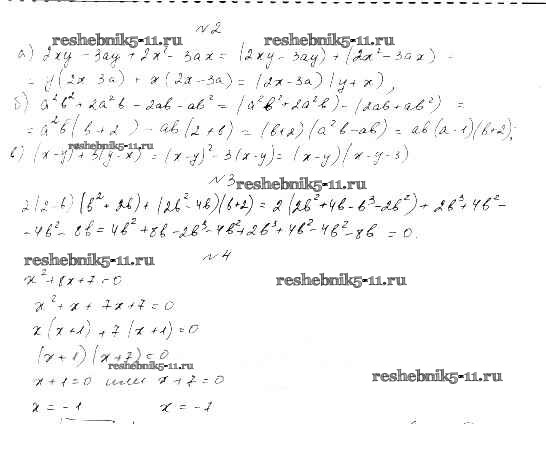 №2
reshebnik5-11.ru reshebnik5-11.ru
а) 2xy - 3ay + 2x² - 3ax = (2xy - 3ay) + (2x² - 3ax) =
= y(2x - 3a) + x(2x - 3a) = (2x - 3a)(y + x),
reshebnik5-11.ru
б) a²b² + 2a²b - 2ab - ab² = (a²b² + 2a²b) - (2ab + ab²) =
= a²b(b + 2) - ab(2 + b) = (b+2)(a²b - ab) = ab(a - 1)(b+2);
в) (x-y)² + 3(y-x) = (x-y)² - 3(x-y) = (x-y)(x-y-3)
reshebnik5-11.ru
№3 reshebnik5-11.ru
2(2-b)(b² + 2b) + (2b² - 4b)(b+2) = 2(2b² + 4b - b³ - 2b²) + 2b³ + 4b² -
- 4b² - 8b = 4b² + 8b - 2b³ - 4b² + 2b³ + 4b² - 4b² - 8b = 0.
reshebnik5-11.ru №4
x² + 8x + 7 = 0 reshebnik5-11.ru
x² + x + 7x + 7 = 0
x(x+1) + 7(x+1) = 0
(x+1)(x+7) = 0
reshebnik5-11.ru
x + 1 = 0 или x + 7 = 0 reshebnik5-11.ru
x = -1 x = -7